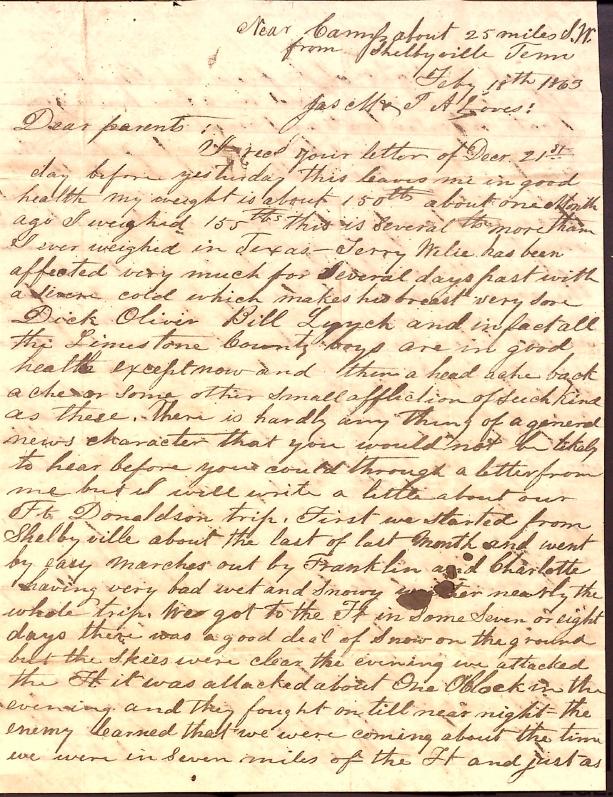 Near Camp about 25 miles S.W.
from Shelbyville Tenn
Feby 18th 1863
Jas M & T A Loves:
Dear parents:
I recd your letter of Decr. 21st
day before yesterday This leaves me in good
health my weight is about 150 lbs about one Month
ago I weighed 155 lbs this is several lbs more than
I ever weighed in Texas - Terry Wilie has been
affected very much for Several days past with
a severe cold which makes his breast very sore
Dick Oliver Bill Lynch and in fact all
the Limestone County boys are in good
health except now and then a head ache back
ache or some other small affliction of such kind
as these. There is hardly any thing of a general
news character that you would not be likely
to hear before you could through a letter from
me but I will write a little about our
Ft. Donaldson trip. First we started from
Shelbyville about the last of last Month and went
by easy marches out by Franklin and Charlotte
having very bad wet and snowy nearly the
whole trip. We got to the Ft in some Seven or eight
days there was a good deal of snow on the ground
but the skies were clear the evening we attacked
the Ft it was attacked about One Oclock in the
evening and they fought on till near night - the
enemy learned that we were coming about the time
we were in seven miles of the Ft and just as